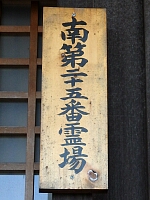 南第二十五番霊場